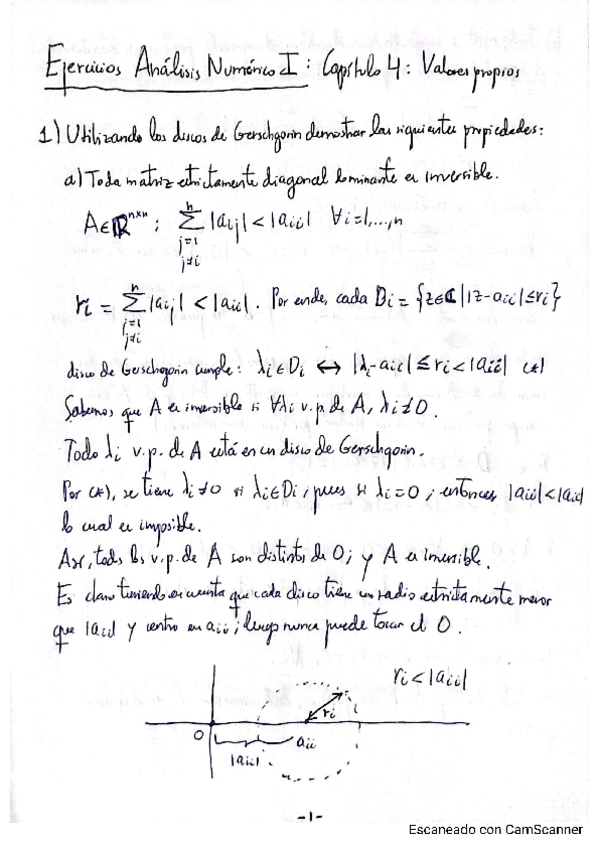 Ejercicios Análisis Numérico I: Capítulo 4: Valores propios
1) Utilizando los discos de Gerschgorin demostrar las siguientes propiedades:
a) Toda matriz estrictamente diagonal dominante es inversible.
A∈ℝⁿˣⁿ: ∑_{j=1, j≠i}^{n} |aij| < |aii| ∀i=1,...,n
ri = ∑_{j=1, j≠i}^{n} |aij| < |aii|. Por ende, cada Di = {z∈ℂ | |z-aii| ≤ ri}
disco de Gerschgorin cumple: λi∈Di ↔ |λi-aii| ≤ ri < |aii| (*)
Sabemos que A es inversible si ∀λi v.p. de A, λi≠0.
Todo λi v.p. de A está en un disco de Gerschgorin.
Por (*), se tiene λi≠0 si λi∈Di, pues si λi=0, entonces |aii|<|aii|
lo cual es imposible.
Así, todos los v.p. de A son distintos de 0, y A es inversible.
Es claro teniendo en cuenta que cada disco tiene un radio estrictamente menor
que |aii| y centro en aii, luego nunca puede tocar el 0.
ri < |aii|
ri
0
aii
|aii|
-1-
Escaneado con CamScanner